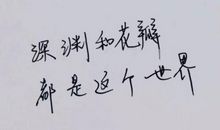 深渊和花瓣
都是这个世界